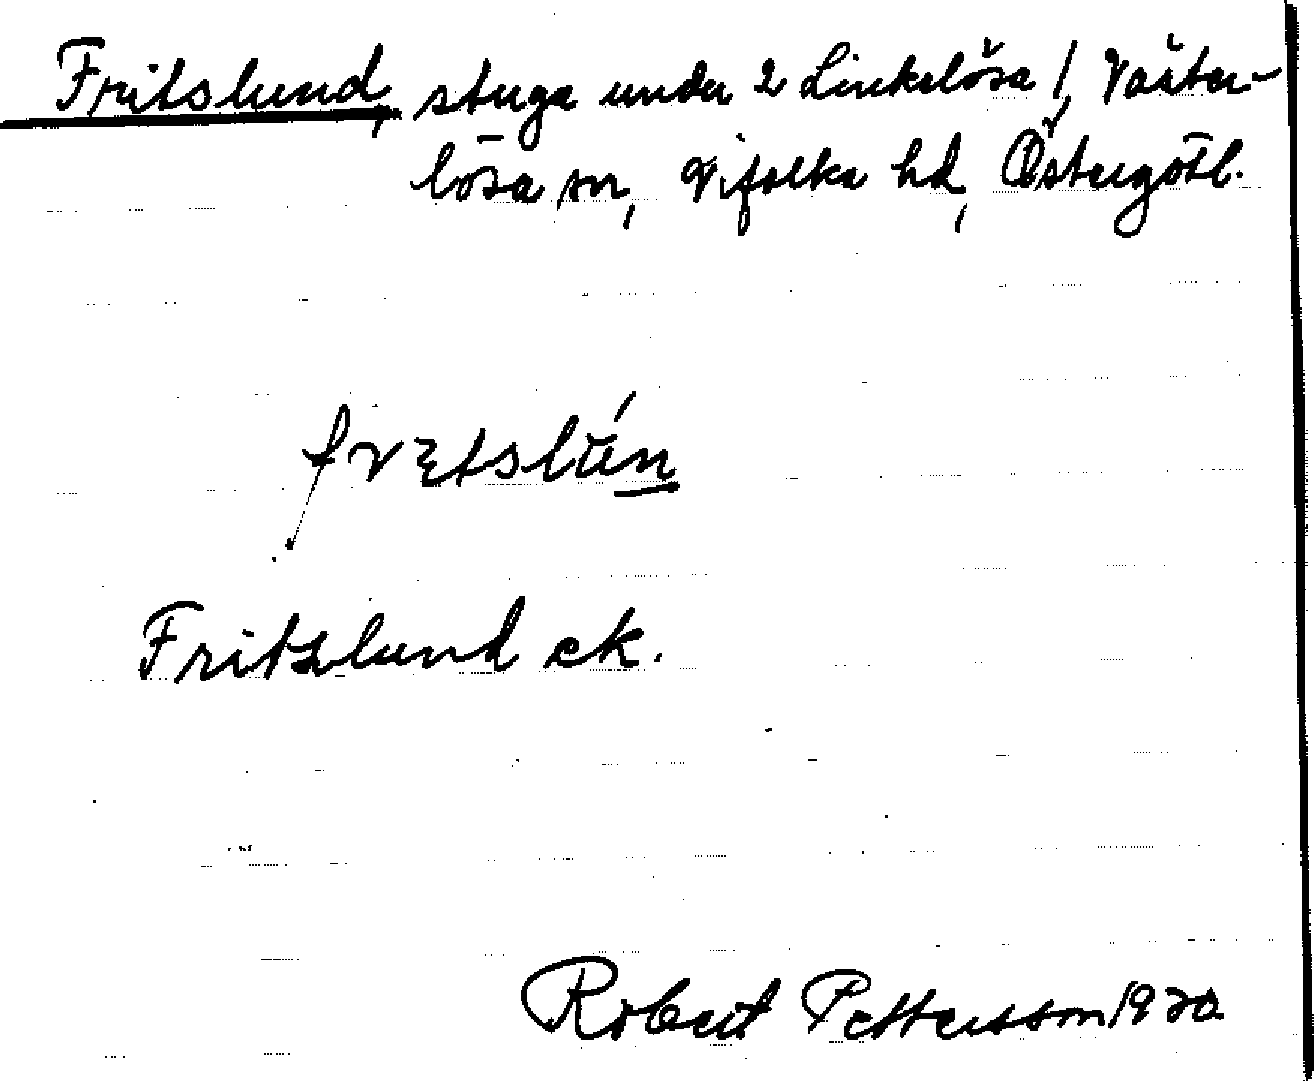 Fritslund, stuga under 2 Linkelösa /, Väster-
lösa sn, Vifolka hd, Östergötl.
Fritzlund ek.
Robert Pettersson 1920